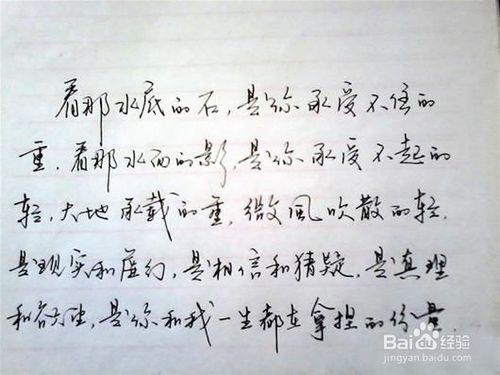 看那水底的石，是你承受不住的
重，看那水面的影，是你承受不起的
轻，大地承载的重，微風吹散的轻，
是现实和虚幻，是相信和猜疑，是真理
和谷生，是你和我一生都在拿捏的份量。
Baidu经验
jingyan.baidu.com